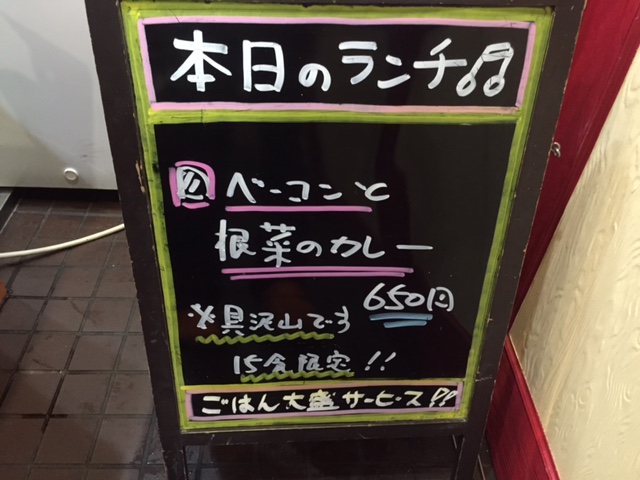 本日のランチ♫
ベーコンと
根菜のカレー
650円
※具沢山です
15食限定!!
ごはん大盛サービス!!